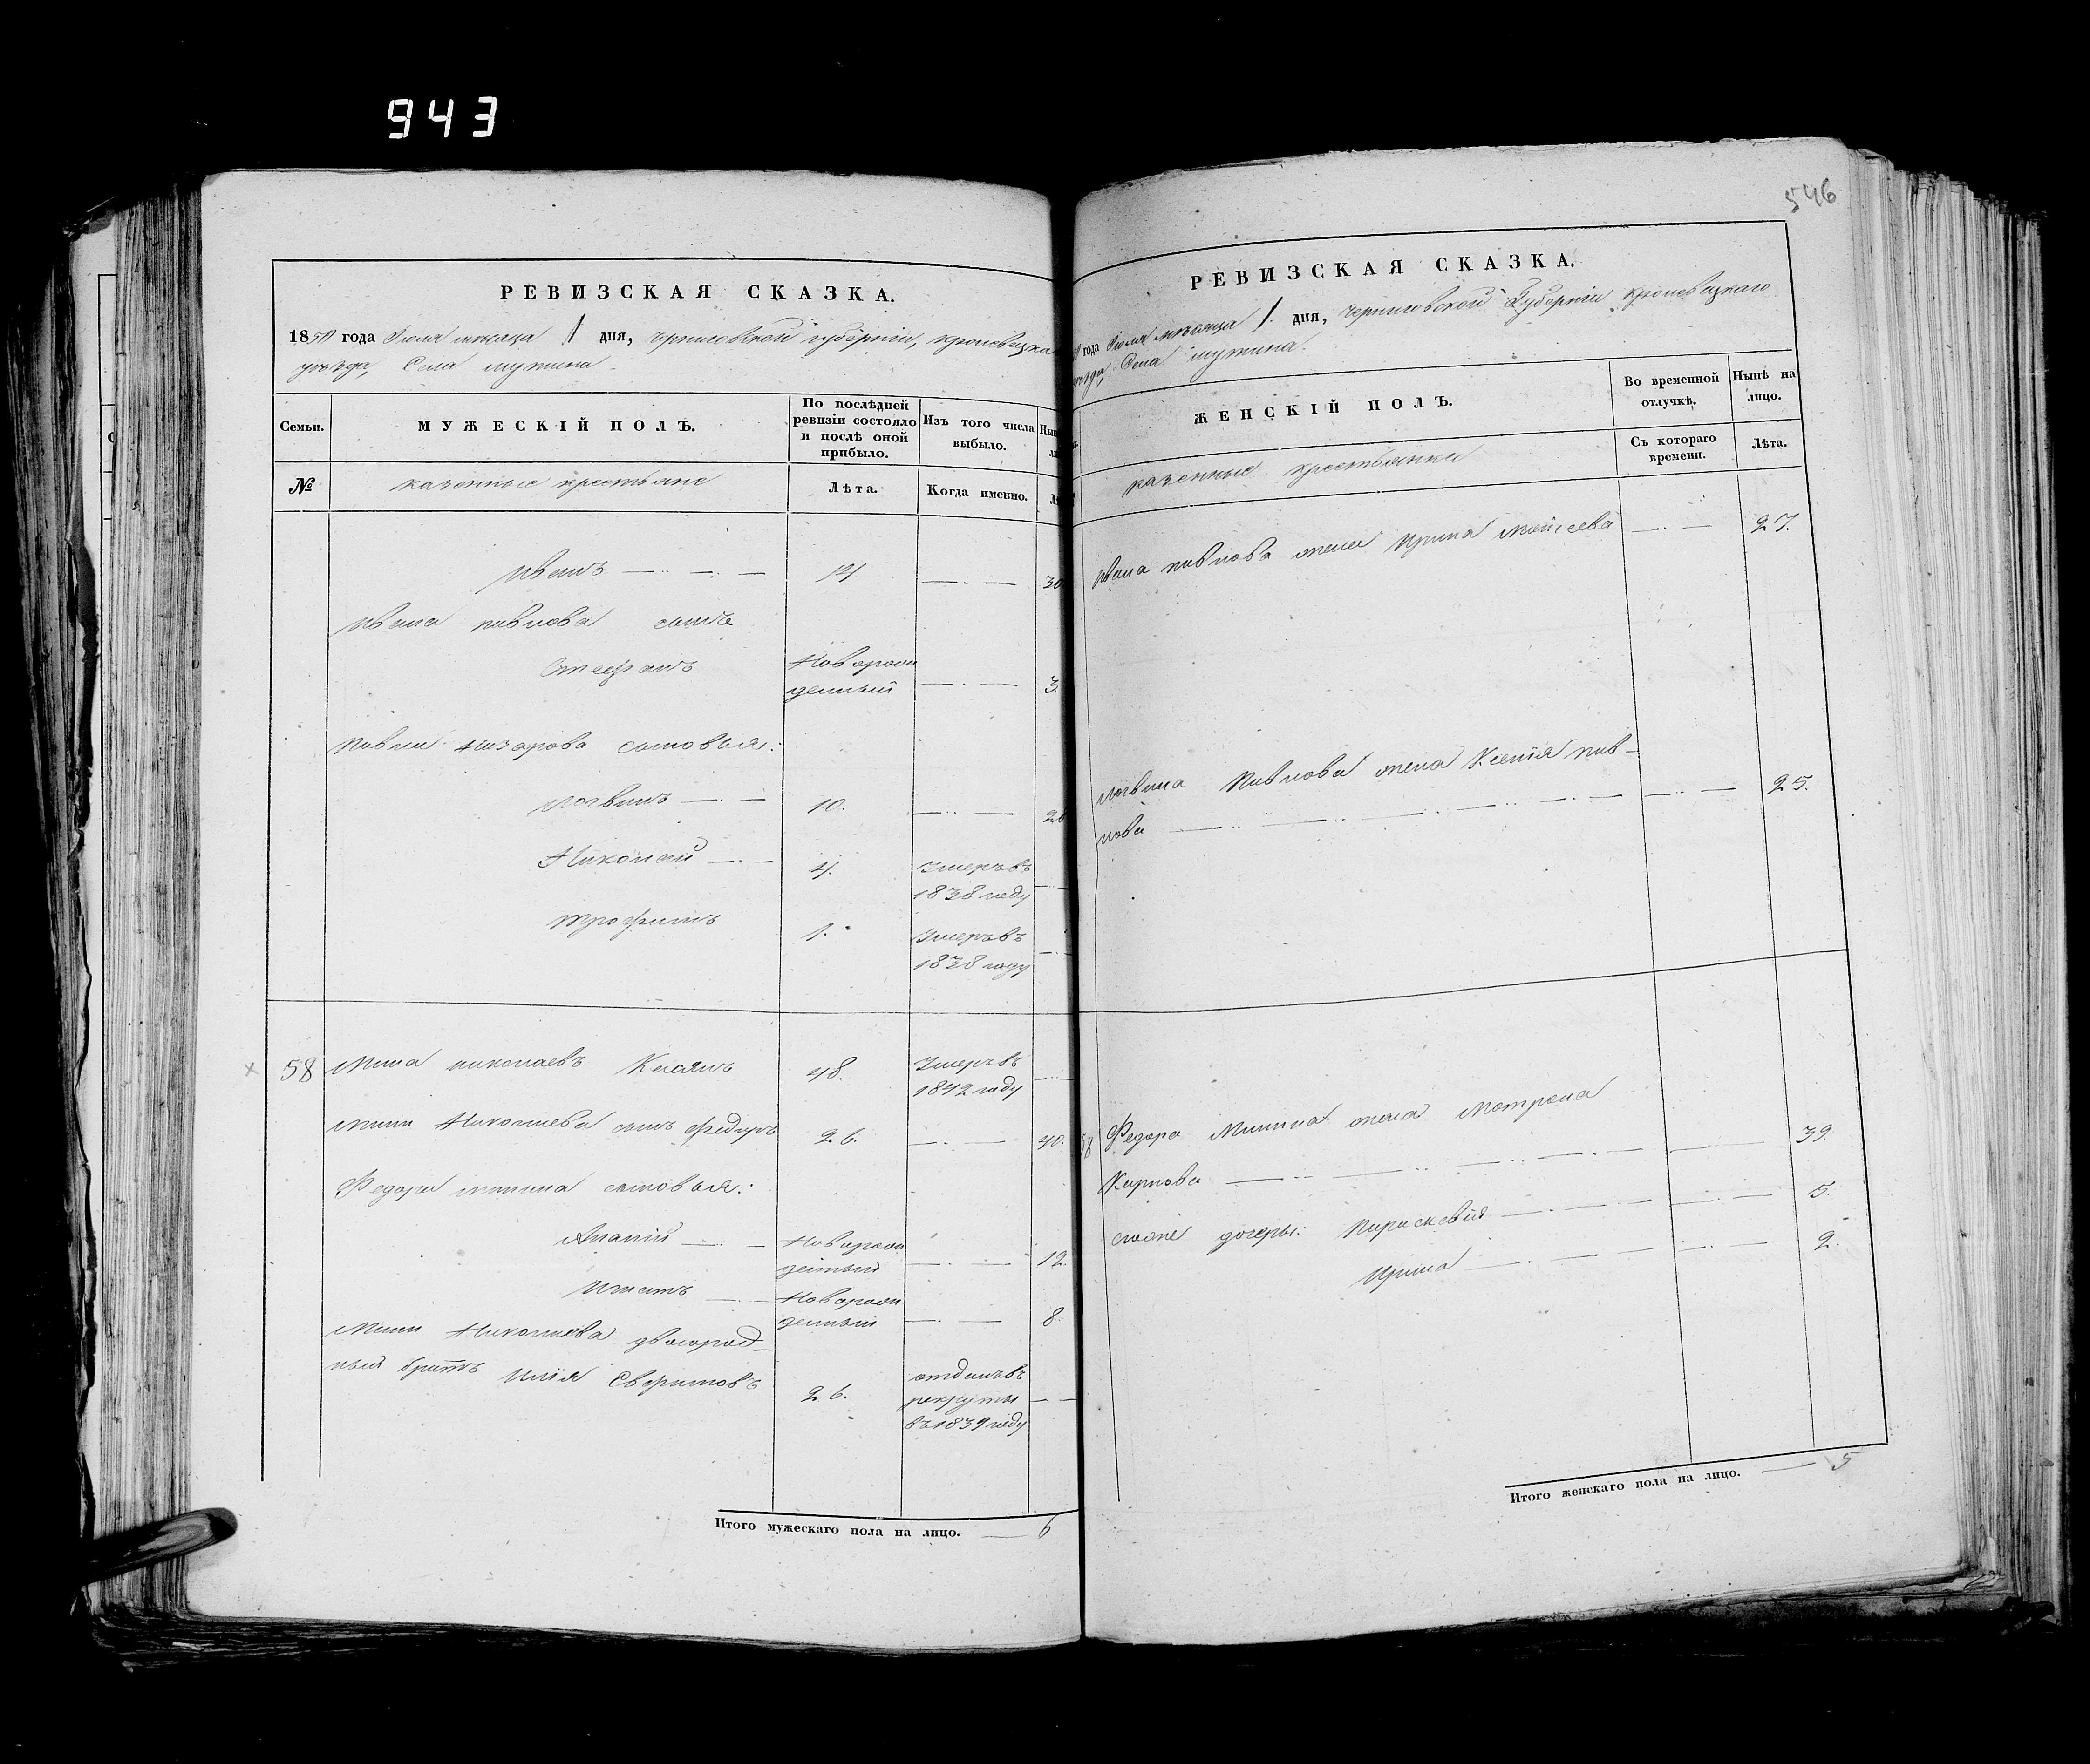 943
546
РЕВИЗСКАЯ СКАЗКА.
1850 года Іюля мѣсяца 1 дня, Черниговской губерніи, Кролевецка
уѣзда, Села мутина
Семьи.
МУЖЕСКІЙ ПОЛЪ.
По послѣдней
ревизіи состояло
и послѣ оной
прибыло.
Изъ того числа
выбыло.
№
казенные крестьяне
Лѣта.
Когда именно.
Иванъ 14 30
Ивана павлова сынъ
Стефанъ Новорож
денный 3.
Павла Назарова сыновья:
Логвинъ 10. 26
Николай 4. Умеръ въ
1838 году
Трофимъ 1. Умеръ въ
1838 году
58 Мина николаевъ 48. Умеръ въ
1842 году
Мины Николаева сынъ Федоръ 26. 40.
Федора минина сыновья:
Ананій Новорож
денный 12.
Игнатъ Новорож
денный 8.
Мины Николаева двоюрод-
ный братъ Илія 26. отданъ въ
рекруты
въ 1839 году
Итого мужескаго пола на лицо. 6
РЕВИЗСКАЯ СКАЗКА.
года Іюля мѣсяца 1. дня, Черниговской Губерніи Кролевецкаго
уѣзда, Села мутина.
ЖЕНСКІЙ ПОЛЪ.
Во временной
отлучкѣ.
Нынѣ на
лицо.
казенные крестьянки
Съ котораго
времени.
Лѣта.
Ивана павлова жена Ирина Моисеева 27.
Логвина Павлова жена Ксенія пав-
лова 25.
58 Федора Минина жена Мотрона
Карпова 39.
его же дочери: Параскевія 5.
Ирина 2.
Итого женскаго пола на лицо. 5